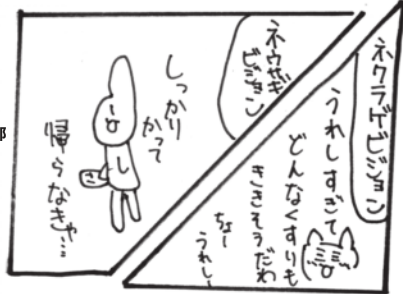 ネクラゲビジョン
うれしすぎて
どんなくすりも
ききそうだわ
ちょー
うれしー
ネウサギ
ビジョン
しっかり
かって
帰らなきゃ…